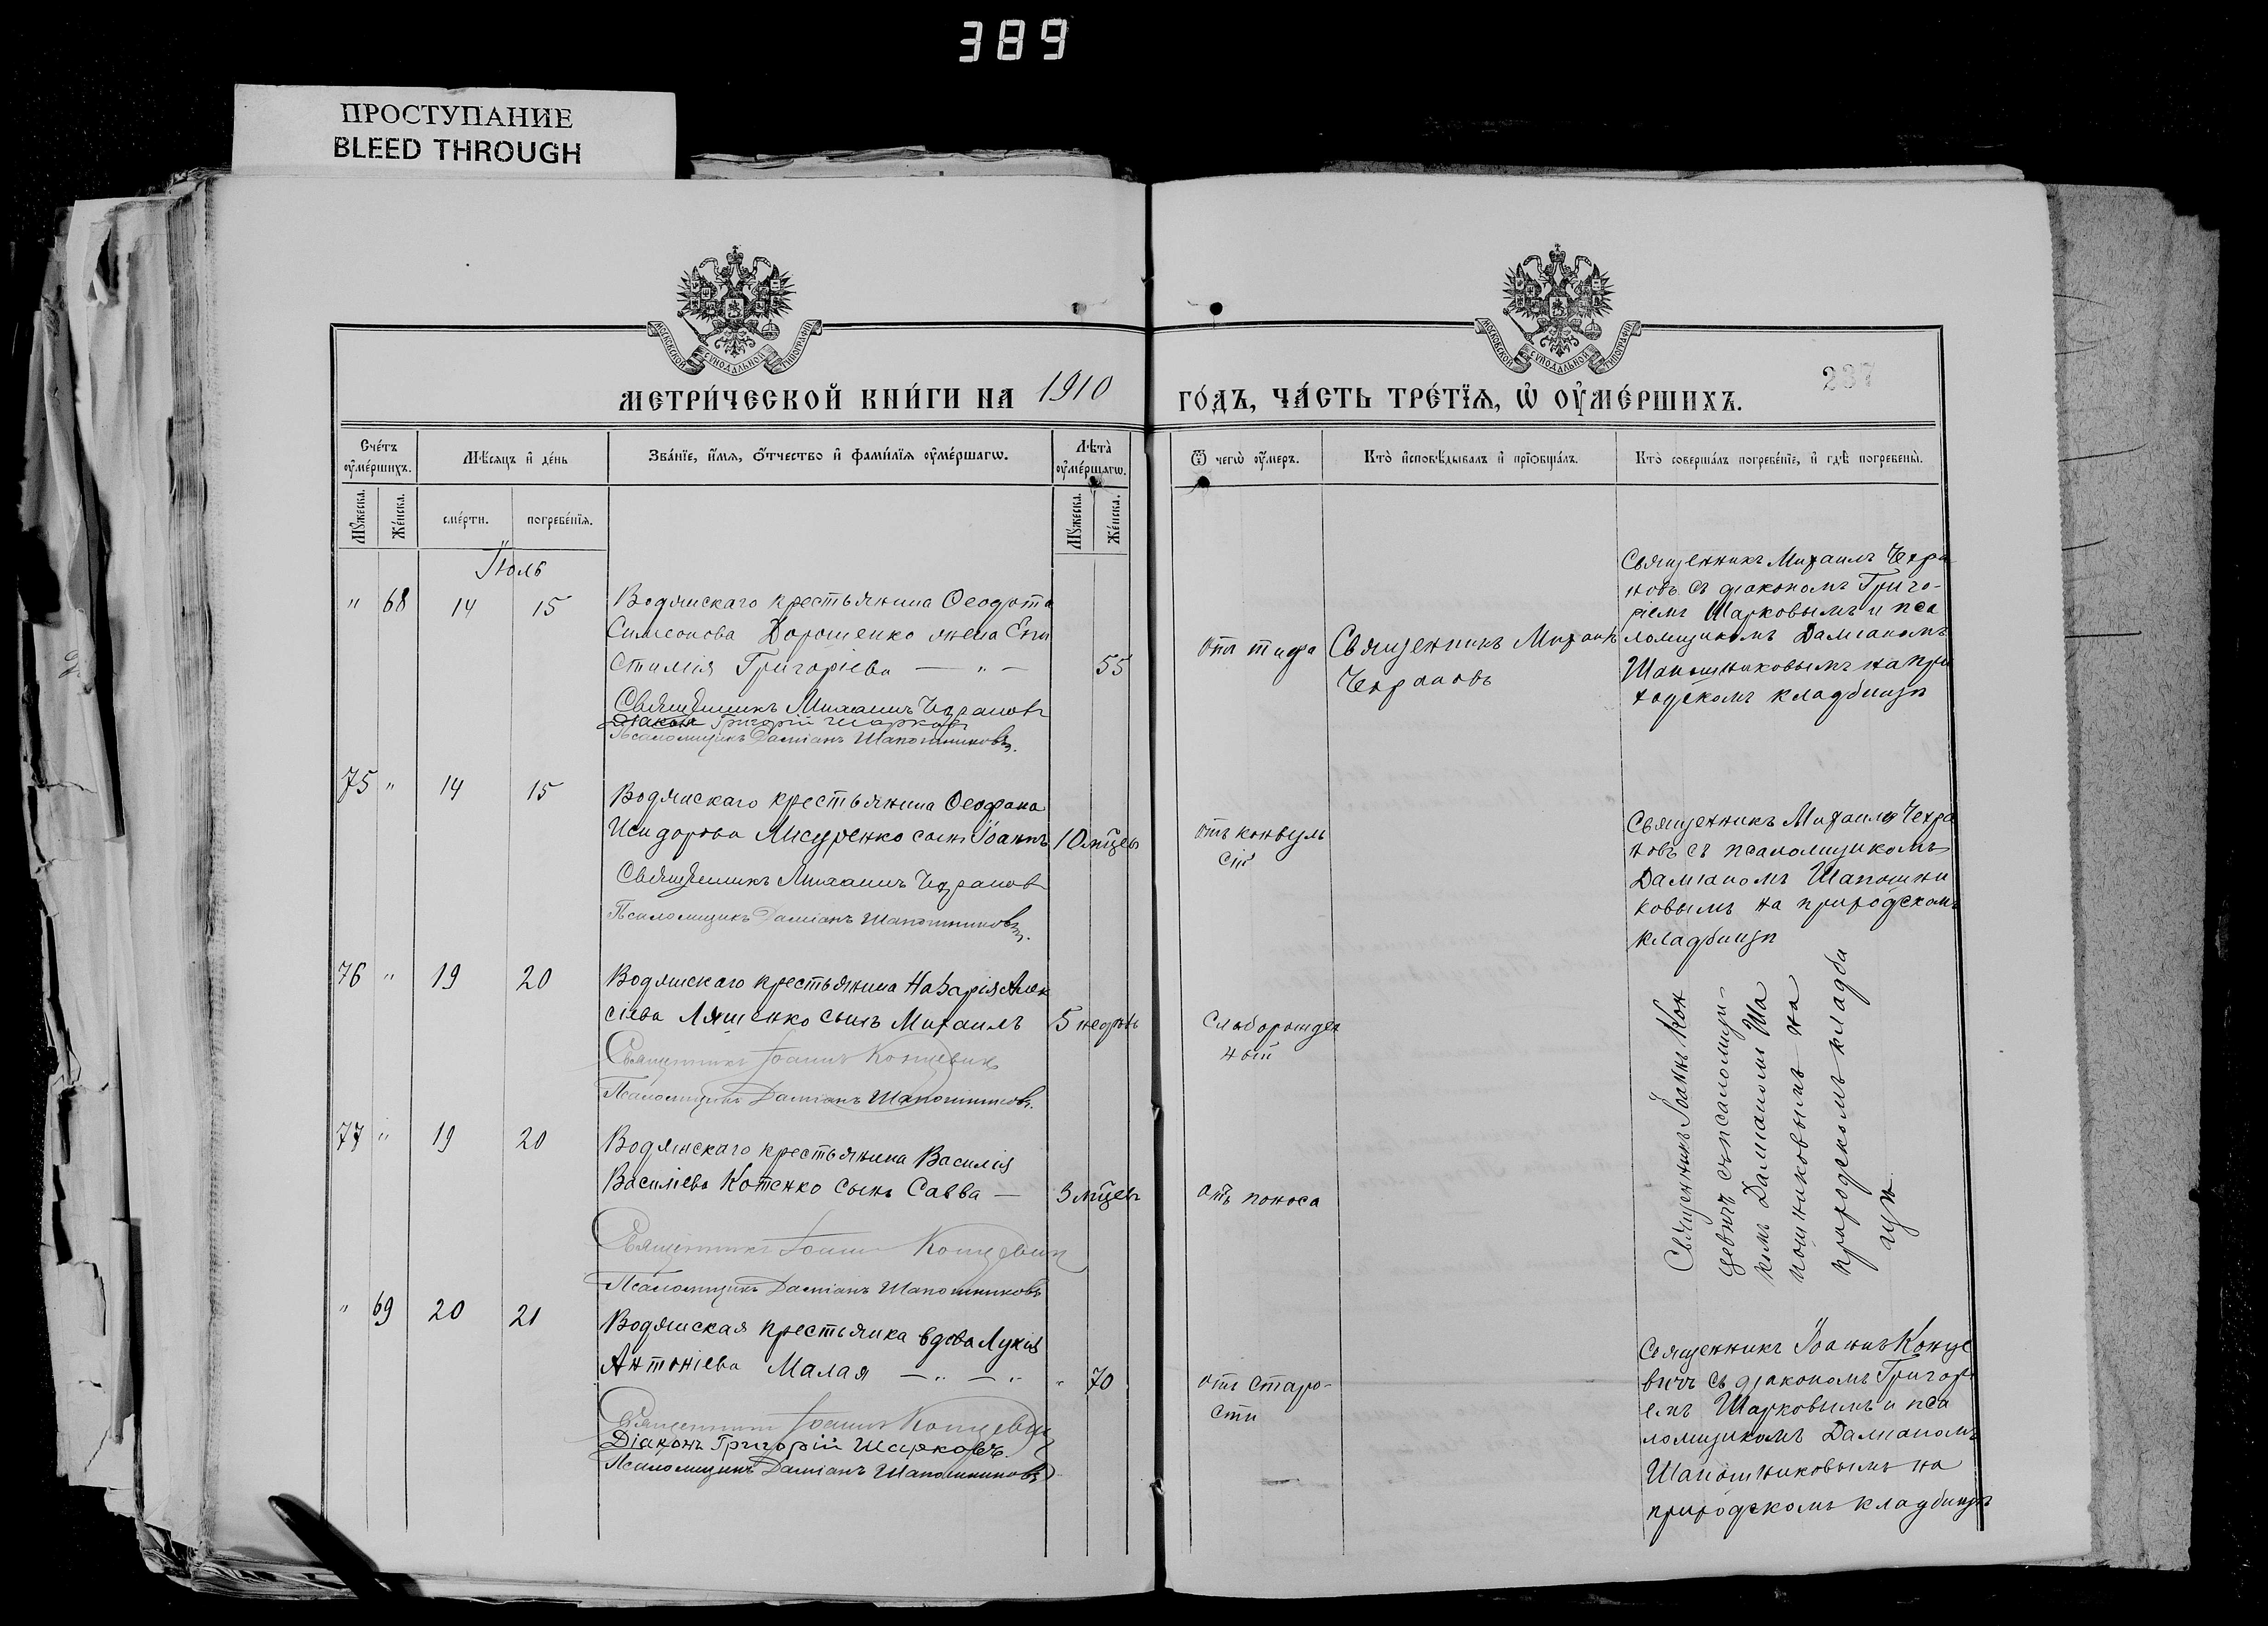 389
ПРОСТУПАНИЕ
BLEED THROUGH
МОСКОВСКОЙ СѴНОДАЛЬНОЙ ТИПОГРАФІИ
МОСКОВСКОЙ СѴНОДАЛЬНОЙ ТИПОГРАФІИ
МЕТРИ́ЧЕСКОЙ КНИ́ГИ НА 1910 ГО́ДЪ, ЧА́СТЬ ТРЕ́ТЇѦ, Ѡ҆ ОУ҆МЕ́РШИХЪ.
237
Сче́тъ оу҆ме́ршихъ.
Мѣ́сѧцъ и҆ де́нь
Зва́нїе, и҆́мѧ, ѻ҆́тчество и҆ фами́лїѧ оу҆ме́ршагѡ.
Лѣ́та оу҆ме́ршагѡ.
Ѿ чегѡ̀ оу҆́меръ.
Кто̀ и҆сповѣ́дывалъ и҆ прїѡбща́лъ.
Кто̀ соверша́лъ погребе́нїе, и҆ гдѣ̀ погребены̀.
Мꙋ́жеска.
Же́нска.
сме́рти.
погребе́нїѧ.
Мꙋ́жеска.
Же́нска.
Іюль
" 68 14 15
Водянскаго крестьянина Ѳеодота
Симеонова Дорошенко жена Епи
стимія Григоріева — " — 55
Священникъ Михаилъ Чехрановъ
Діаконъ Григорій Шарковъ
Псаломщикъ Даміанъ Шапошниковъ.
отъ тифа
Священникъ Михаилъ
Чехрановъ
Священникъ Михаилъ Чехра
новъ съ діакономъ Григо-
ріемъ Шарковымъ и пса
ломщикомъ Даміаномъ
Шапошниковымъ на при
ходскомъ кладбищѣ
75 " 14 15
Водянскаго крестьянина Ѳеофана
Исидорова Мисуренко сынъ Іоаннъ 10 мѣсцевъ
Священникъ Михаилъ Чехрановъ
Псаломщикъ Даміанъ Шапошниковъ.
отъ конвуль
сій
Священникъ Михаилъ Чехра
новъ съ псаломщикомъ
Даміаномъ Шапошни
ковымъ на приходскомъ
кладбищѣ
76 " 19 20
Водянскаго крестьянина Назарія Алек
сіева Ляшенко сынъ Михаилъ 5 недѣль
Священникъ Іоаннъ Концевичъ
Псаломщикъ Даміанъ Шапошниковъ.
Слаборожден
ный
Священникъ Іоаннъ Кон
цевичъ съ псаломщи-
комъ Даміаномъ Ша
пошниковымъ на
приходскомъ кладби
щѣ
77 " 19 20
Водянскаго крестьянина Василія
Василіева Котенко сынъ Савва — 3 мѣсцевъ
Священникъ Іоаннъ Концевичъ
Псаломщикъ Даміанъ Шапошниковъ
отъ поноса
" 69 20 21
Водянская крестьянка вдова Лукія
Антоніева Малая — " — " " 70
Священникъ Іоаннъ Концевичъ
Діаконъ Григорій Шарковъ.
Псаломщикъ Даміанъ Шапошниковъ
отъ старо-
сти
Священникъ Іоаннъ Конце
вичъ съ діакономъ Григорі
емъ Шарковымъ и пса
ломщикомъ Даміаномъ
Шапошниковымъ на
приходскомъ кладбищѣ